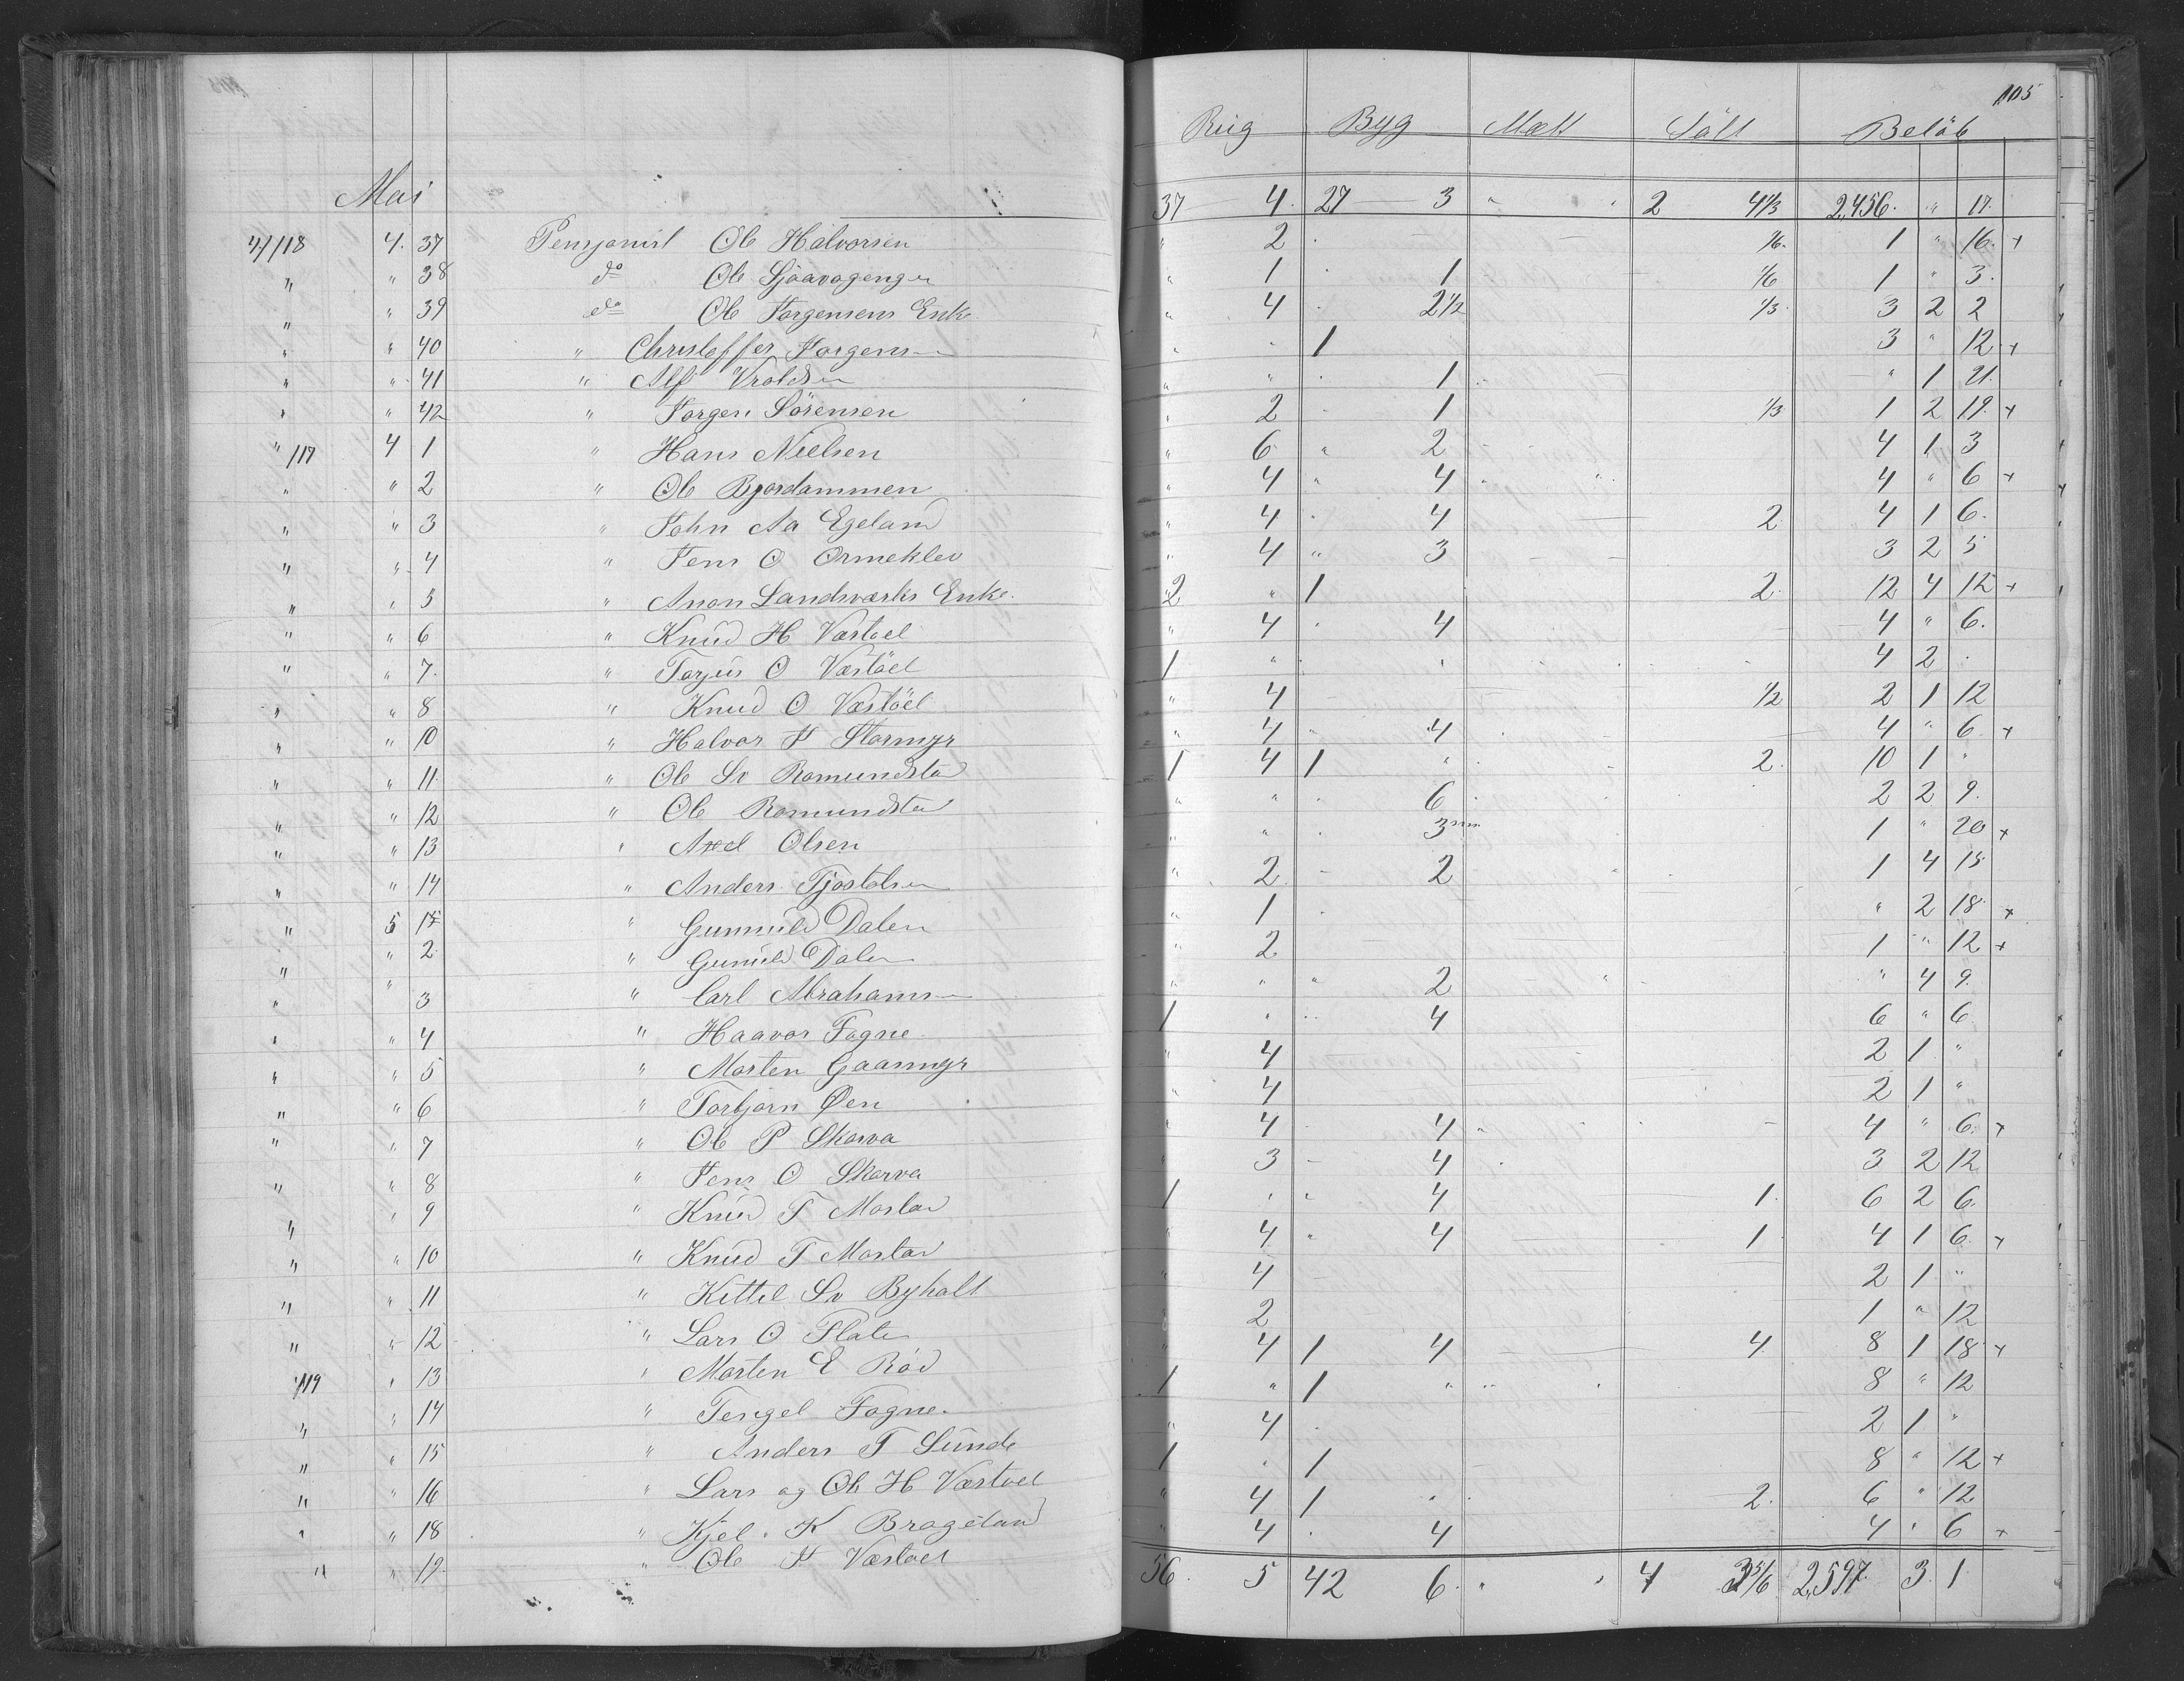 105
Rug Byg Malt Salt Beløb
Mai
37 4 27 3 " " 2 4 1/3 2,456 " 17
4/118 4 37 Pensjonist Ole Halvorsen " 2 1/6 1 " 16 +
" " 38 do Ole Sjaavagenger " 1 1 1/6 1 " 3
" " 39 do Ole Jorgensens Enke " 4 2 1/2 1/3 3 2 2
" " 40 " Christoffer Jorgens " " 1 3 " 12 +
" " 41 " Alf Vroldsen " " 1 " 1 21
" " 42 " Jorgen Sörensen " 2 1 1/3 1 2 19 +
" /117 4 1 " Hans Nielsen " 6 " 2 4 1 3
" " 2 " Ole Bjordammen " 4 " 4 4 " 6 +
" " 3 " John Aa Egeland " 4 " 4 2 4 1 6
" " 4 " Jens O Ormeklev " 4 " 3 3 2 5
" " 5 " Anon Landsværks Enke 2 " 1 2 12 4 12 +
" " 6 " Knud H Væstøel " 4 " 4 4 " 6
" " 7 " Tarjus O Væstöel 1 " " 4 2 "
" " 8 " Knud O Væstöel " 4 1/2 2 1 12
" " 10 " Halvor J Stormyr " 4 " 4 4 " 6 +
" " 11 " Ole Sv Romundstad 1 4 1 " 2 10 1 "
" " 12 " Ole Romundstad " " " 6 2 2 9
" " 13 " Axel Olsen " " " 3 1 " 20 +
" " 14 " Anders Tjostolsen " 2 2 1 4 15
" 5 1 " Gunnuld Dalen " 1 " 2 18 +
" " 2 " Gunuld Dalen " 2 1 " 12 +
" " 3 " Carl Abrahams " " " 2 " 4 9
" " 4 " Haavor Fagne 1 " " 4 6 " 6
" " 5 " Morten Gaasmyr " 4 2 1 "
" " 6 " Torbjørn Øen " 4 2 1 "
" " 7 " Ole P Skarva " 4 4 4 " 6 +
" " 8 " Jens O Skarva " 3 4 3 2 12
" " 9 " Knud T Mostad 1 " " 4 1 6 2 6
" " 10 " Knud T Mostad " 4 " 4 1 4 1 6 +
" " 11 " Kittel Sv Byholt " 4 2 1 "
" " 12 " Lars O Flaten 2 1 " 12
/119 " 13 " Morten E Röd " 4 1 4 4 8 1 18 +
" " 14 " Tengel Fagne 1 " 1 " 8 " 12
" " 15 " Anders T Sunde " 4 2 1 "
" " 16 " Lars og Ole H Væstøel 1 " 1 8 " 12 +
" " 18 " Kjel K Brageland " 4 1 " 2 6 " 12
" " 19 " Ole J Væstøel " 4 " 4 4 " 6 +
56 5 42 6 " " 4 3 5/6 2,597 3 1